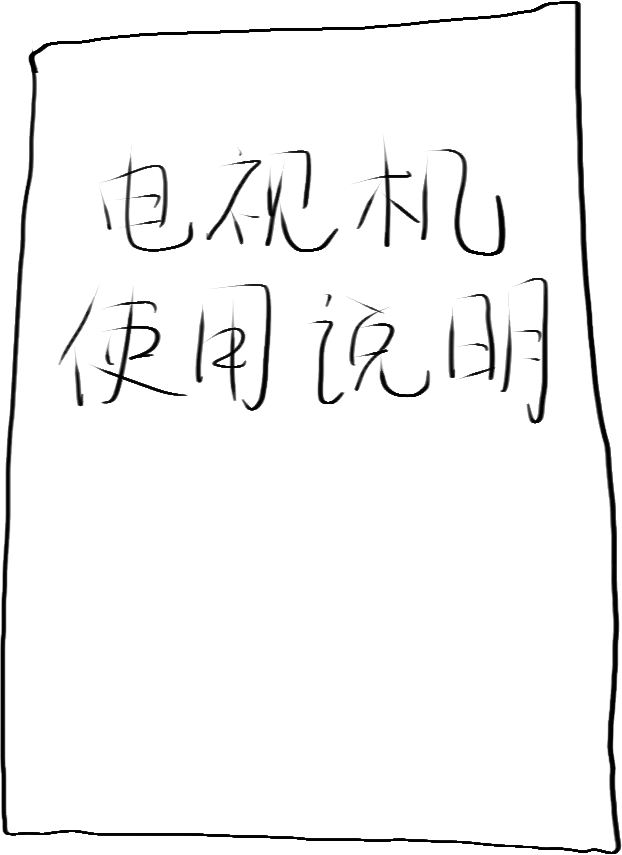 电视机
使用说明